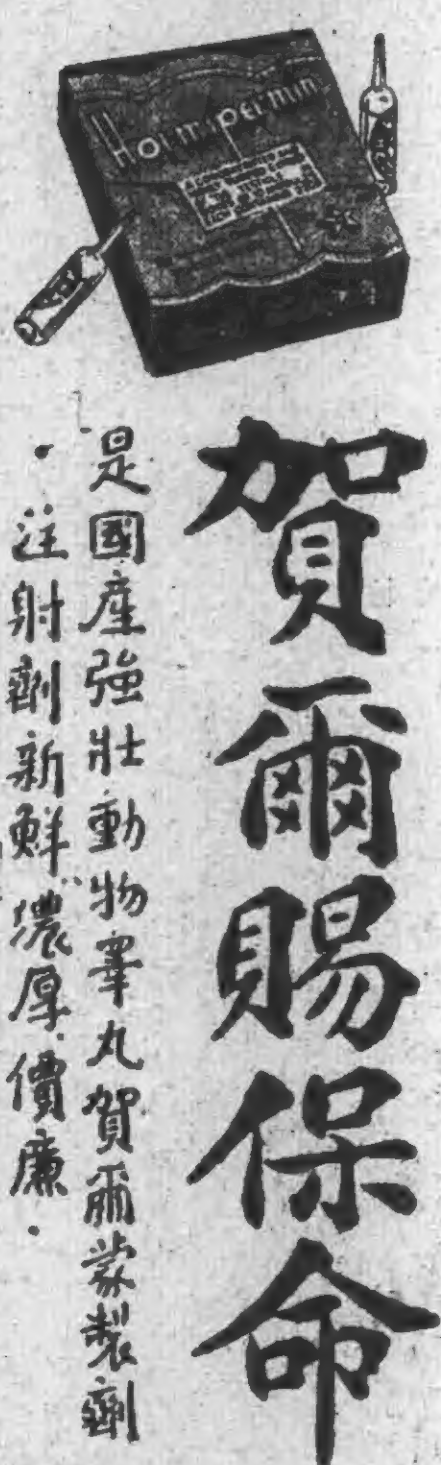 Hormspermin
賀爾賜保命
是國産強壯動物睾丸賀爾蒙製劑
・注射劑新鮮濃厚價廉・